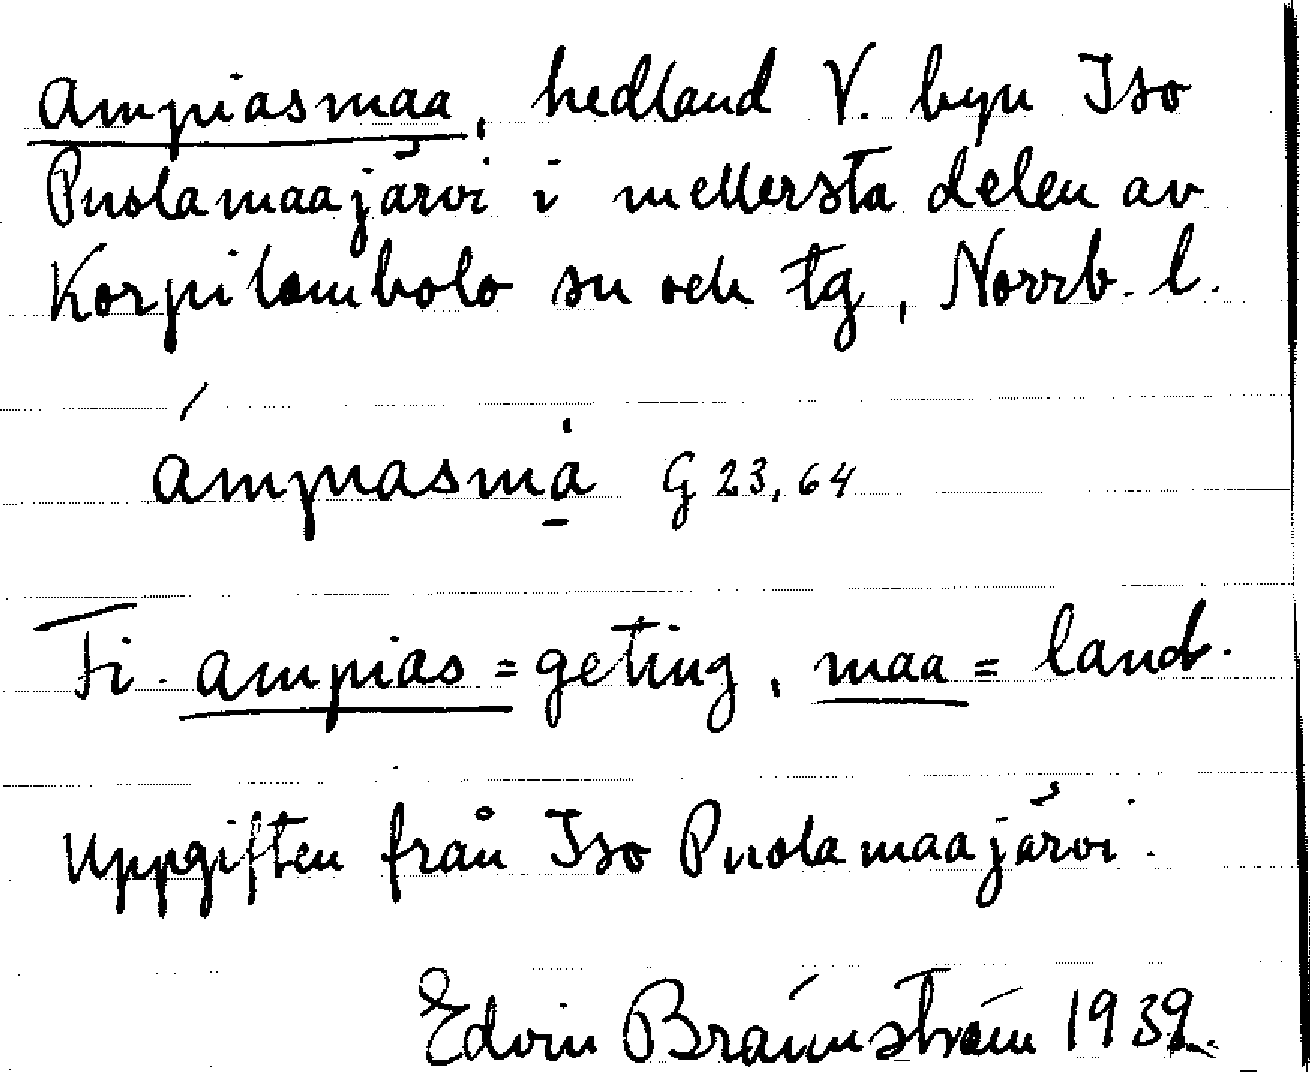 Ampiasmaa, hedland V. byn Iso
Puolamaajärvi i mellersta delen av
Korpilombolo sn och tg, Norrb. l.
ámpiasmā̇ G 23, 64
Fi. ampias = geting, maa = land.
Uppgiften från Iso Puolamaajärvi.
Edvin Brännström 1939.